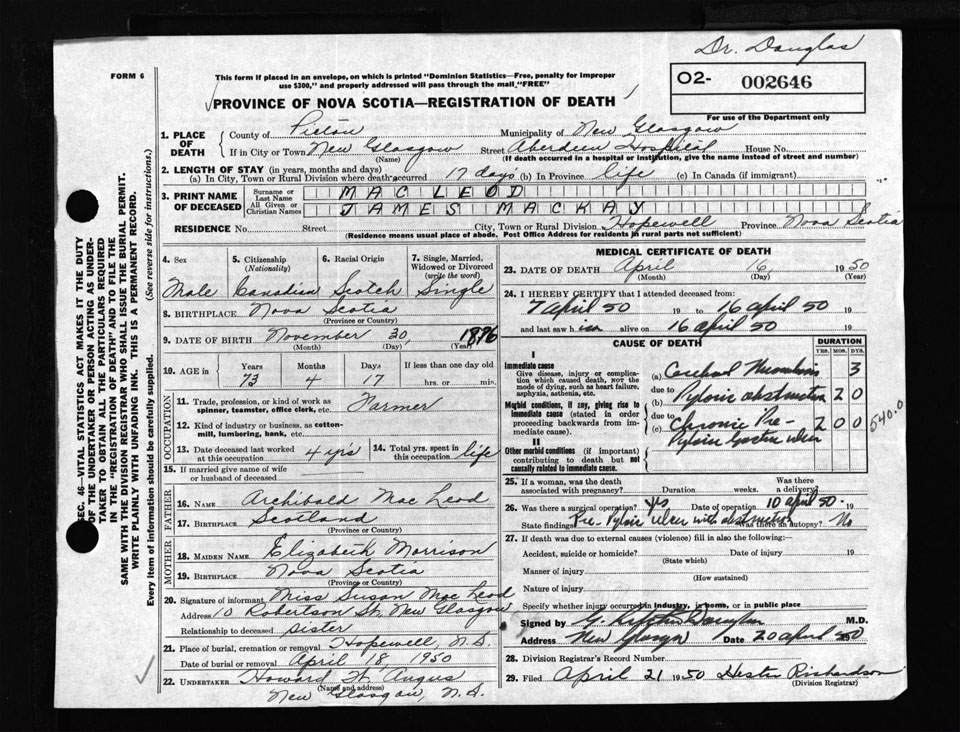 Dr. Douglas
FORM 6
This form if placed in an envelope, on which is printed "Dominion Statistics—Free, penalty for improper
use $300," and properly addressed will pass through the mail "FREE"
O2- 002646
For use of the Department only
PROVINCE OF NOVA SCOTIA—REGISTRATION OF DEATH
SEC. 46—VITAL STATISTICS ACT MAKES IT THE DUTY
OF THE UNDERTAKER OR PERSON ACTING AS UNDER-
TAKER TO OBTAIN ALL THE PARTICULARS REQUIRED
IN THE "REGISTRATION OF DEATH" AND TO FILE THE
SAME WITH THE DIVISION REGISTRAR WHO SHALL ISSUE THE BURIAL PERMIT.
WRITE PLAINLY WITH UNFADING INK. THIS IS A PERMANENT RECORD.
Every item of information should be carefully supplied. (See reverse side for instructions.)
1. PLACE OF DEATH
County of Pictou Municipality of New Glasgow
If in City or Town New Glasgow Street Aberdeen Hospital House No.
(Name) (If death occurred in a hospital or institution, give the name instead of street and number)
2. LENGTH OF STAY (in years, months and days)
(a) In City, Town or Rural Division where death occurred 17 days (b) In Province life (c) In Canada (if immigrant)
3. PRINT NAME OF DECEASED
Surname or Last Name MACLEOD
All Given or Christian Names JAMES MACKAY
RESIDENCE No. Street City, Town or Rural Division Hopewell Province Nova Scotia
(Residence means usual place of abode. Post Office Address for residents in rural parts not sufficient)
4. Sex 5. Citizenship (Nationality) 6. Racial Origin 7. Single, Married, Widowed or Divorced (write the word)
Male Canadian Scotch Single
8. BIRTHPLACE Nova Scotia
(Province or Country)
9. DATE OF BIRTH November 30, 1876
(Month) (Day) (Year)
10. AGE in Years Months Days If less than one day old
73 4 17 hrs. or min.
OCCUPATION
11. Trade, profession, or kind of work as spinner, teamster, office clerk, etc. Farmer
12. Kind of industry or business, as cotton-mill, lumbering, bank, etc.
13. Date deceased last worked at this occupation 4 yrs 14. Total yrs. spent in this occupation life
15. If married give name of wife or husband of deceased
FATHER
16. NAME Archibald Mac Leod
17. BIRTHPLACE Scotland
(Province or Country)
MOTHER
18. MAIDEN NAME Elizabeth Morrison
19. BIRTHPLACE Nova Scotia
(Province or Country)
20. Signature of informant Miss Susan Mac Leod
Address 10 Robertson St. New Glasgow
Relationship to deceased sister
21. Place of burial, cremation or removal Hopewell, N.S.
Date of burial or removal April 18, 1950
22. UNDERTAKER Howard W. Angus
(Name and address)
New Glasgow, N.S.
MEDICAL CERTIFICATE OF DEATH
23. DATE OF DEATH April 16, 1950
(Month) (Day) (Year)
24. I HEREBY CERTIFY that I attended deceased from:
7 April 50 19 to 16 April 50 19
and last saw him alive on 16 April 50 19
CAUSE OF DEATH DURATION
YRS. MOS. DYS.
I
Immediate cause
Give disease, injury or complication which caused death, NOT the mode of dying, such as heart failure, asphyxia, asthenia, etc.
(a) Cerebral Thrombosis 3
due to
Morbid conditions, if any, giving rise to immediate cause (stated in order proceeding backwards from immediate cause).
(b) Pyloric obstruction 2 0
due to
(c) Chronic Pre- 2 0 0
Pyloric Gastric ulcer
540.0
II
Other morbid conditions (if important) contributing to death but not causally related to immediate cause.
25. If a woman, was the death associated with pregnancy? Duration weeks. Was there a delivery?
26. Was there a surgical operation? Yes Date of operation 10 April 50
State findings Pre-Pyloric ulcer with obstruction Was there an autopsy? No
27. If death was due to external causes (violence) fill in also the following:—
Accident, suicide or homicide? Date of injury 19
(State which)
Manner of injury
(How sustained)
Nature of injury
Specify whether injury occurred in industry, in home, or in public place
Signed by Douglas M.D.
Address New Glasgow Date 20 April 1950
28. Division Registrar's Record Number
29. Filed April 21 1950 Hester Richardson
(Division Registrar)